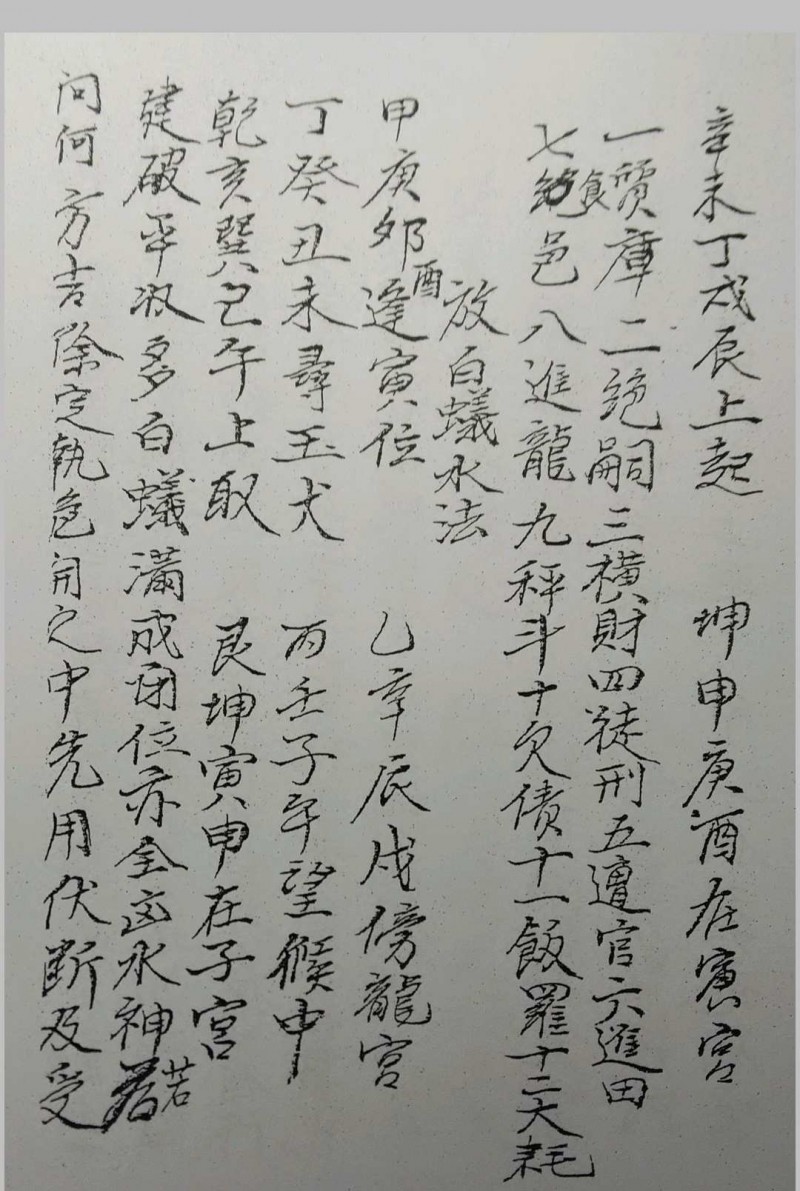 辛未丁戌辰上起　坤申庚酉在寅宮
一質庫二絕嗣三橫財四徒刑五遭官六進田
七食邑八進龍九秤斗十欠債十一飯羅十二大耗
放白蟻水法
甲庚卯酉逢寅位　乙辛辰戌傍龍宮
丁癸丑未尋玉犬　丙壬子午望猴中
乾亥巽巳午上取　艮坤寅申在子宮
建破平收多白蟻滿成閉位亦全凶水神若
问何方吉除定執危開之中先用伏断及受